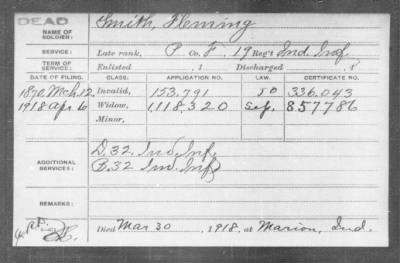 DEAD
NAME OF SOLDIER: Smith, Fleming
SERVICE: Late rank, P Co. F, 19 Reg't Ind. Inf.
TERM OF SERVICE: Enlisted , 1 Discharged , 1
DATE OF FILING. CLASS. APPLICATION NO. LAW. CERTIFICATE NO.
1870, Mch 12 Invalid, 153,791 336,043
1918 Apr 6 Widow, 1,118,320 857786
Minor,
ADDITIONAL SERVICES: D. 32 Ind. Inf.
B. 32 Ind. Inf.
REMARKS:
Died Mar 30, 1918, at Marion, Ind.